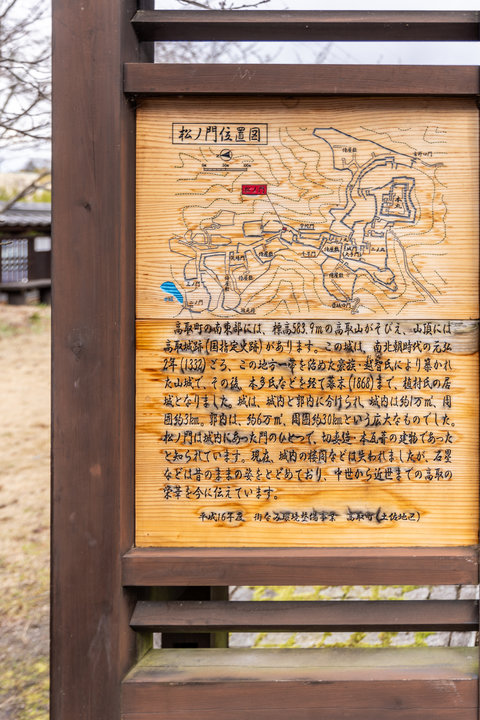 松ノ門位置図
高取町の南東部には、標高583.9mの高取山がそびえ、山頂には
高取城跡(国指定史跡)があります。この城は、南北朝時代の元弘
2年(1332)ごろ、この地方一帯を治めた豪族・越智氏により築かれ
た山城で、その後、本多氏などを経て幕末(1868)まで、植村氏の居
城となりました。城は、城内と郭内に分けられ、城内は約1万㎡、周
囲約3km。郭内は、約6万㎡、周囲約30kmという広大なものでした。
松ノ門は城内にあった門のひとつで、切妻造・本瓦葺の建物であった
と知られています。現在、城内の楼閣などは失われましたが、石塁
などは昔のままの姿をとどめており、中世から近世までの高取の
栄華を今に伝えています。
平成16年度 街なみ環境整備事業 高取町(土佐地区)